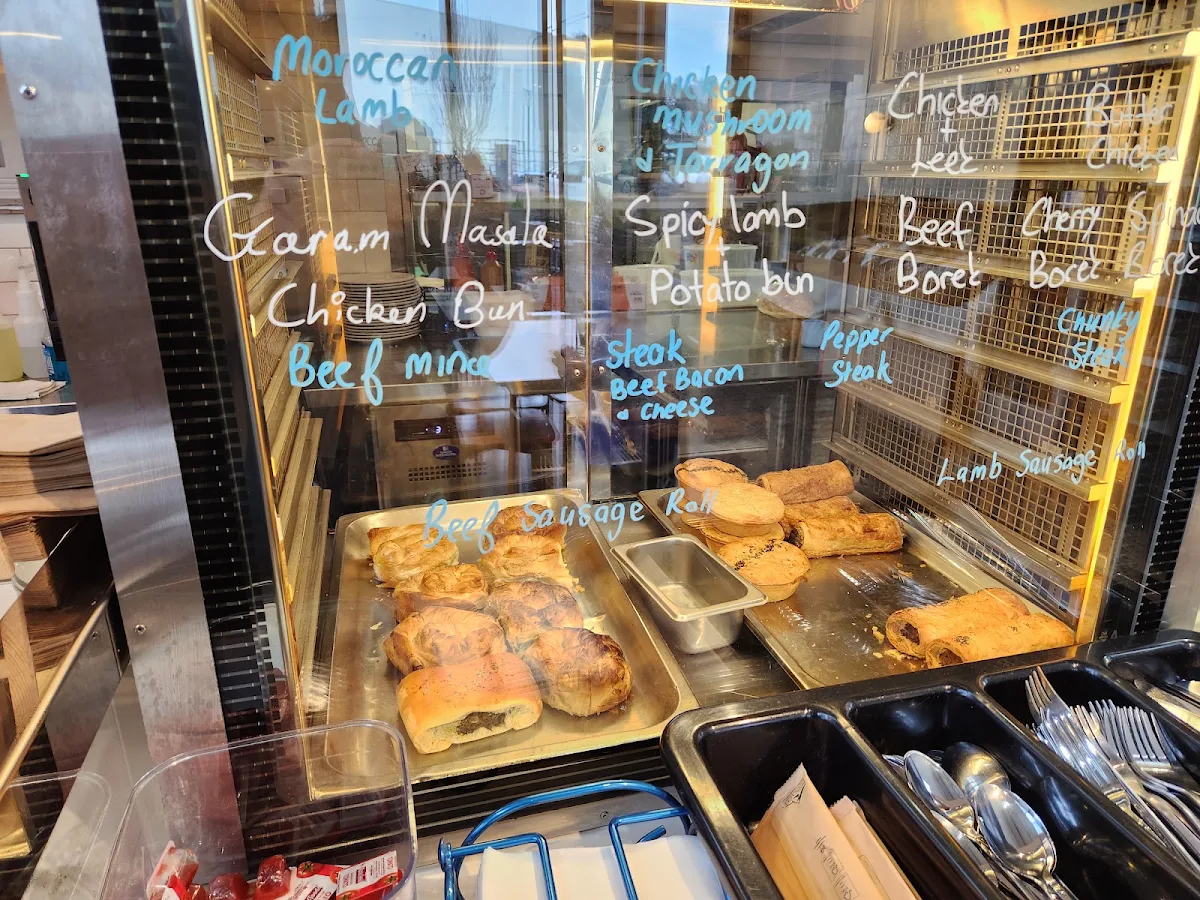 Moroccan
Lamb
Garam Masala
Chicken Bun
Beef mince
Beef Sausage Roll
Chicken
mushroom
& Tarragon
Spicy lamb
+
Potato bun
Steak
Beef Bacon
& Cheese
Chicken
+
Leek
Butter
Chicken
Beef
Borek
Cherry
Borek
Borek
Pepper
Steak
Chunky
Steak
Lamb Sausage Roll